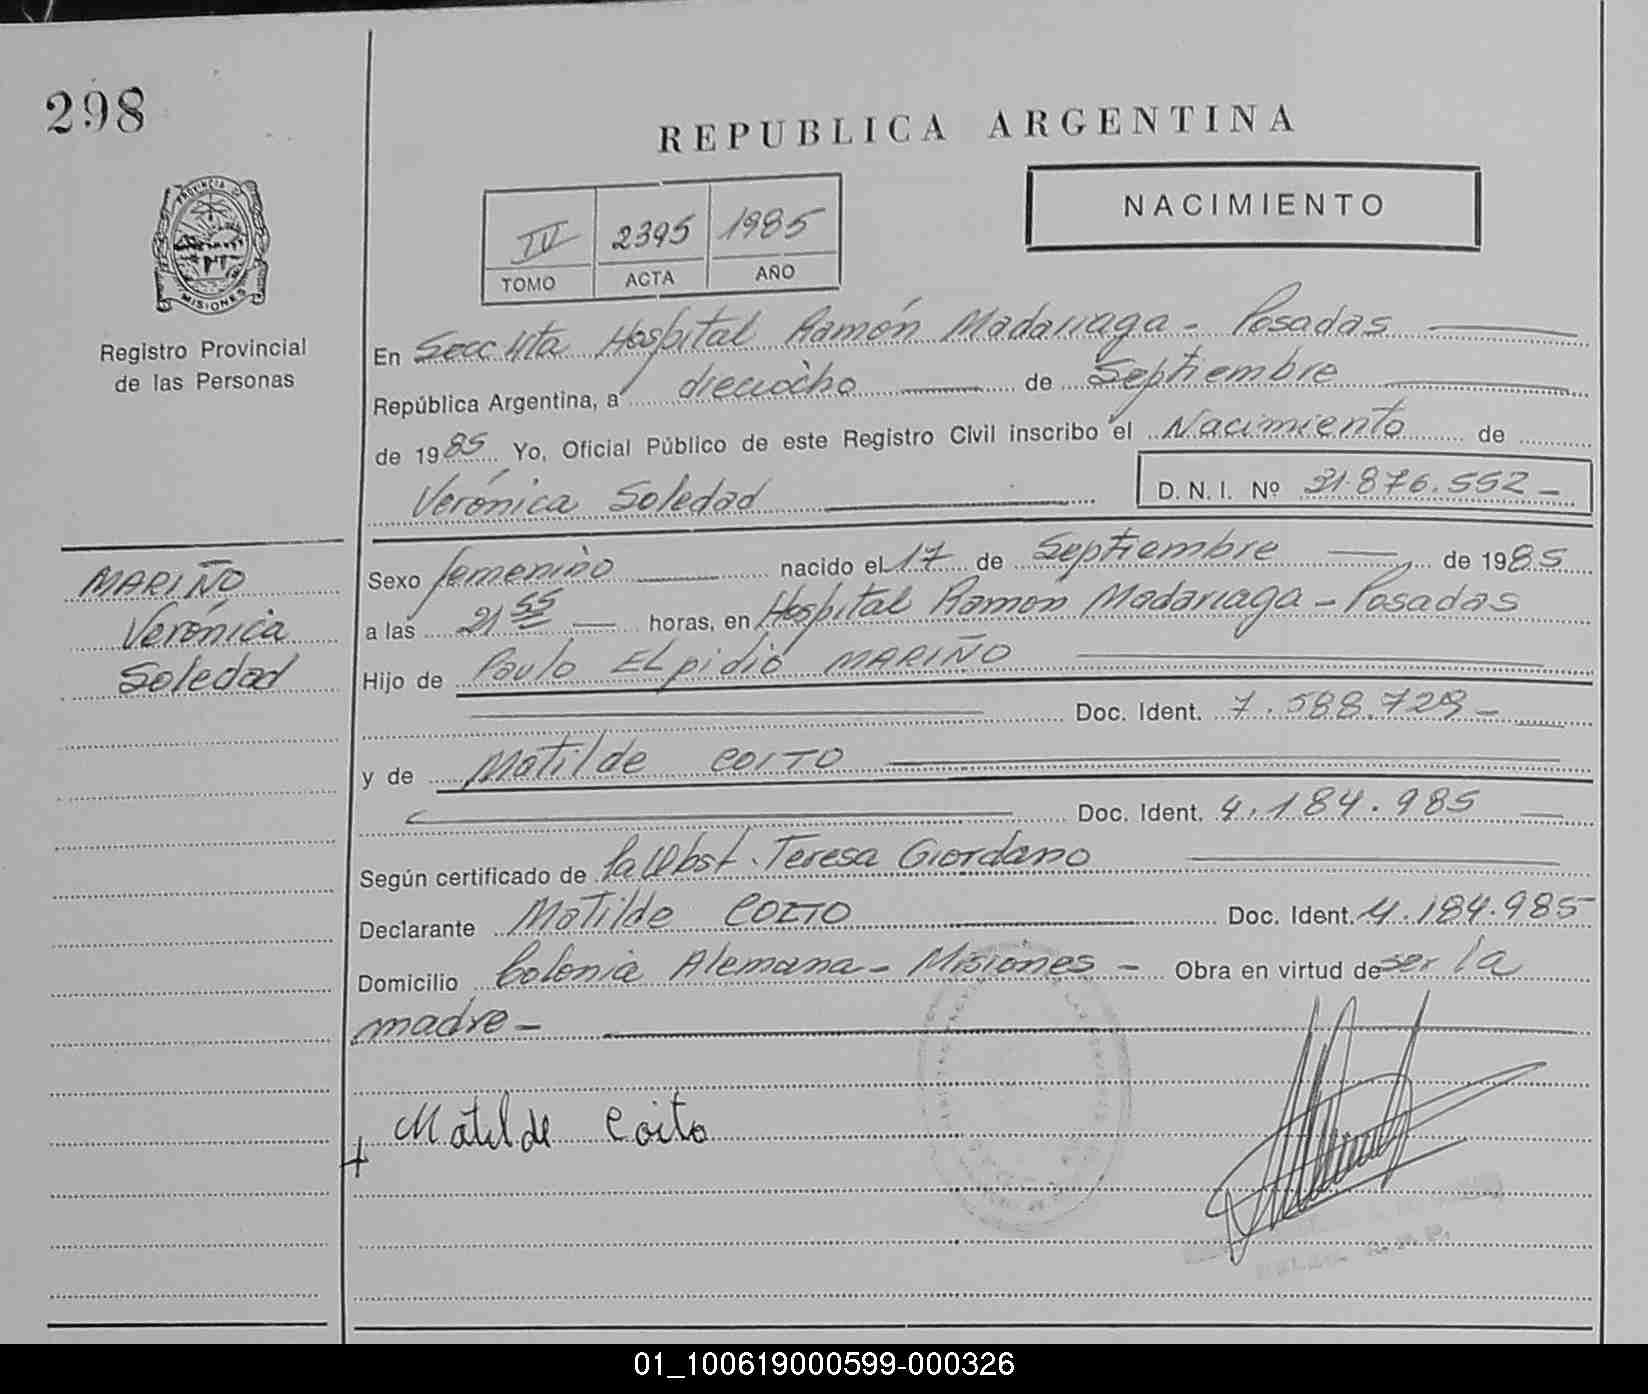 298
REPUBLICA ARGENTINA
NACIMIENTO
IV 2395 1985
TOMO ACTA AÑO
PROVINCIA DE
MISIONES
Registro Provincial
de las Personas
En Secc 4ta Hospital Ramón Madariaga - Posadas
República Argentina, a dieciocho de Septiembre
de 1985 Yo, Oficial Público de este Registro Civil inscribo el Nacimiento de
Verónica Soledad D.N.I. Nº 31.876.552 -
MARIÑO
Verónica
Soledad
Sexo femenino nacido el 17 de Septiembre de 1985
a las 21 55 horas, en Hospital Ramon Madariaga - Posadas
Hijo de Paulo ELpidio MARIÑO
Doc. Ident. 7.588.729 -
y de Matilde COITO
Doc. Ident. 4.184.985
Según certificado de la Obst. Teresa Giordano
Declarante Matilde COITO Doc. Ident. 4.184.985
Domicilio Colonia Alemana - Misiones - Obra en virtud de ser la
madre -
Matilde Coito
01_100619000599-000326